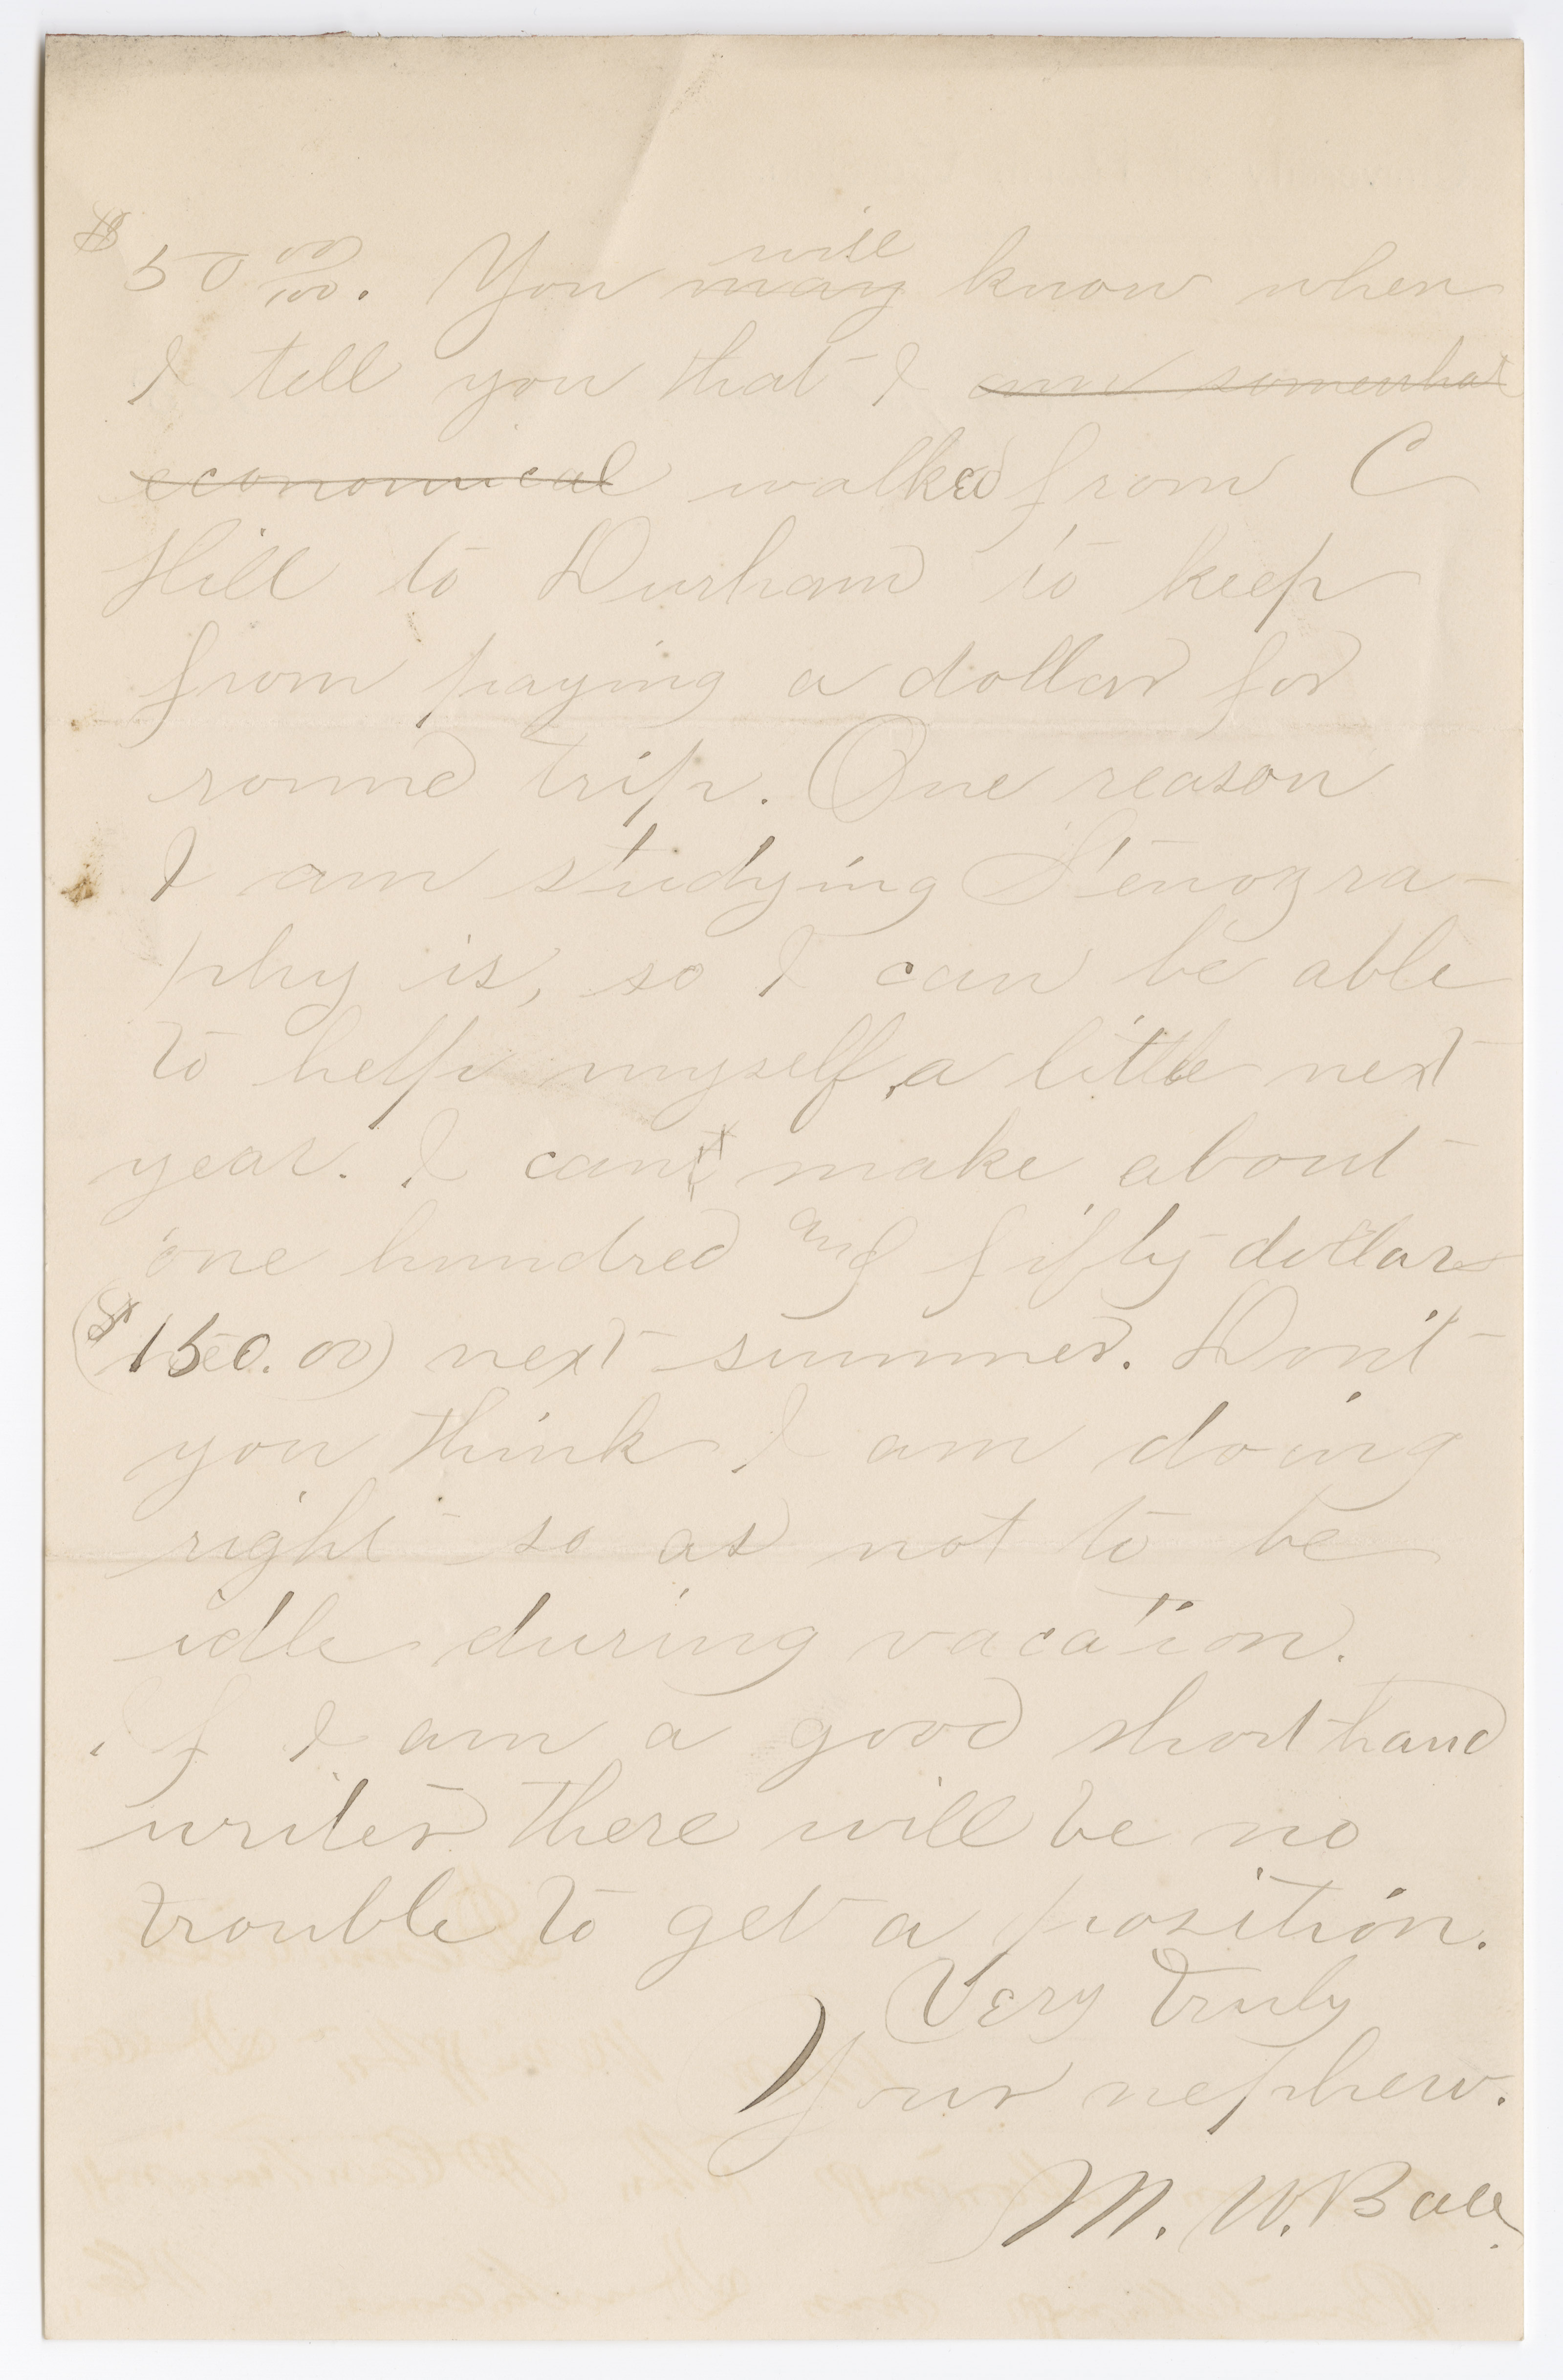 $50 00/100. You will may know when
I tell you that I am somewhat
economical walked from C
Hill to Durham to keep
from paying a dollar for
round trip. One reason
I am studying Stenogra-
phy is, so I can be able
to help myself a little next
year. I can make about
one hundred and fifty dollars
($150.00) next summer. Don't
you think I am doing
right so as not to be
idle during vacation.
if I am a good short hand
writer there will be no
trouble to get a position.
Very truly
Your nephew.
M. W. Ball.